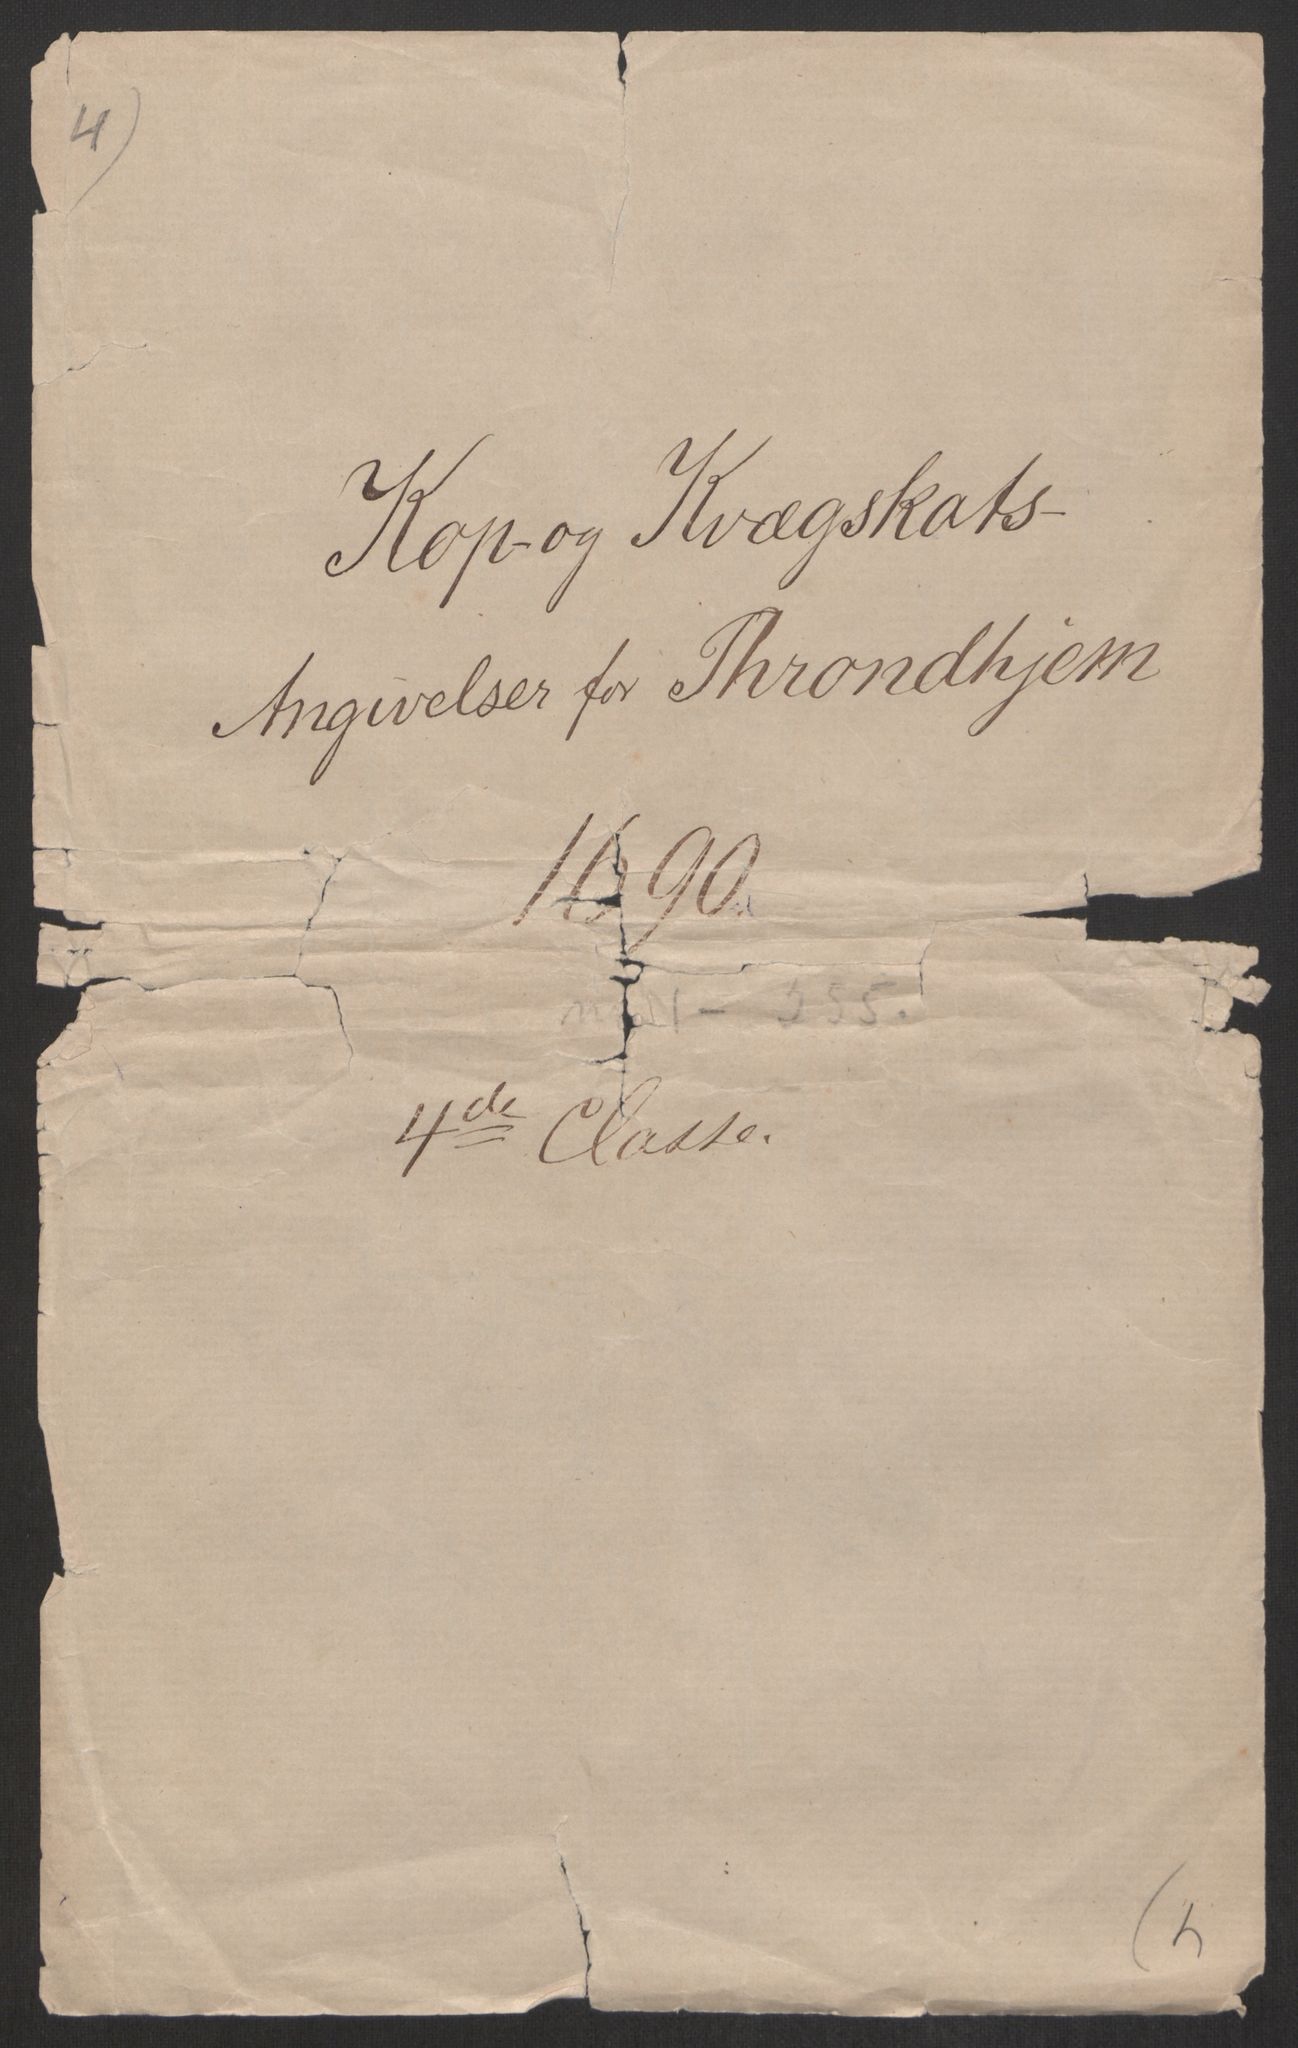 4)
Kop- og Kvægskats-
Angivelser for Throndhjem
1690.
255.
4de Classe.
4)